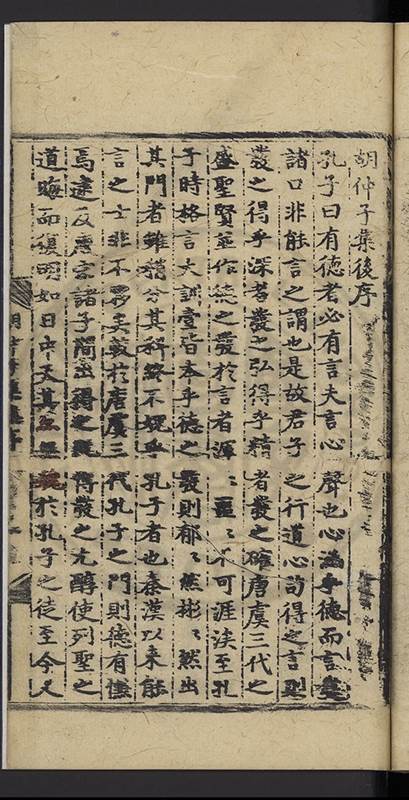 胡仲子集後序
孔子曰有德者必有言夫言心聲也心滿乎德而言
諸口非能言之謂也是故君子之行道心苟得之言則
發之得乎深者發之弘得乎精者發之確唐虞三代之
盛聖賢並作德之發於言者渾渾噩噩不可涯涘至孔
子時格言大訓壹皆本乎德之發則郁郁然彬彬然出
其門者雖積分其科終不䙝乎孔子者也秦漢以來能
言之士非不夥矣求於唐虞三代孔子之門則德有慊
焉逮及濂洛諸子間出得之發之尤醇使列聖之
道晦而復明如日中天其於孔子之徒至今又